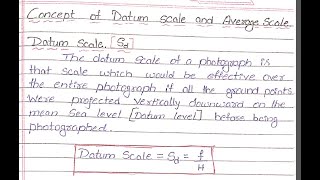 Concept of Datum Scale and Averge Scale
Datum Scale. [Sd]
The datum scale of a photograph is
that scale which would be effective over
the entire photograph if all the ground points
were projected vertically downward on the
mean Sea level [Datum level] before being
photographed.
Datum Scale = Sd = f/H